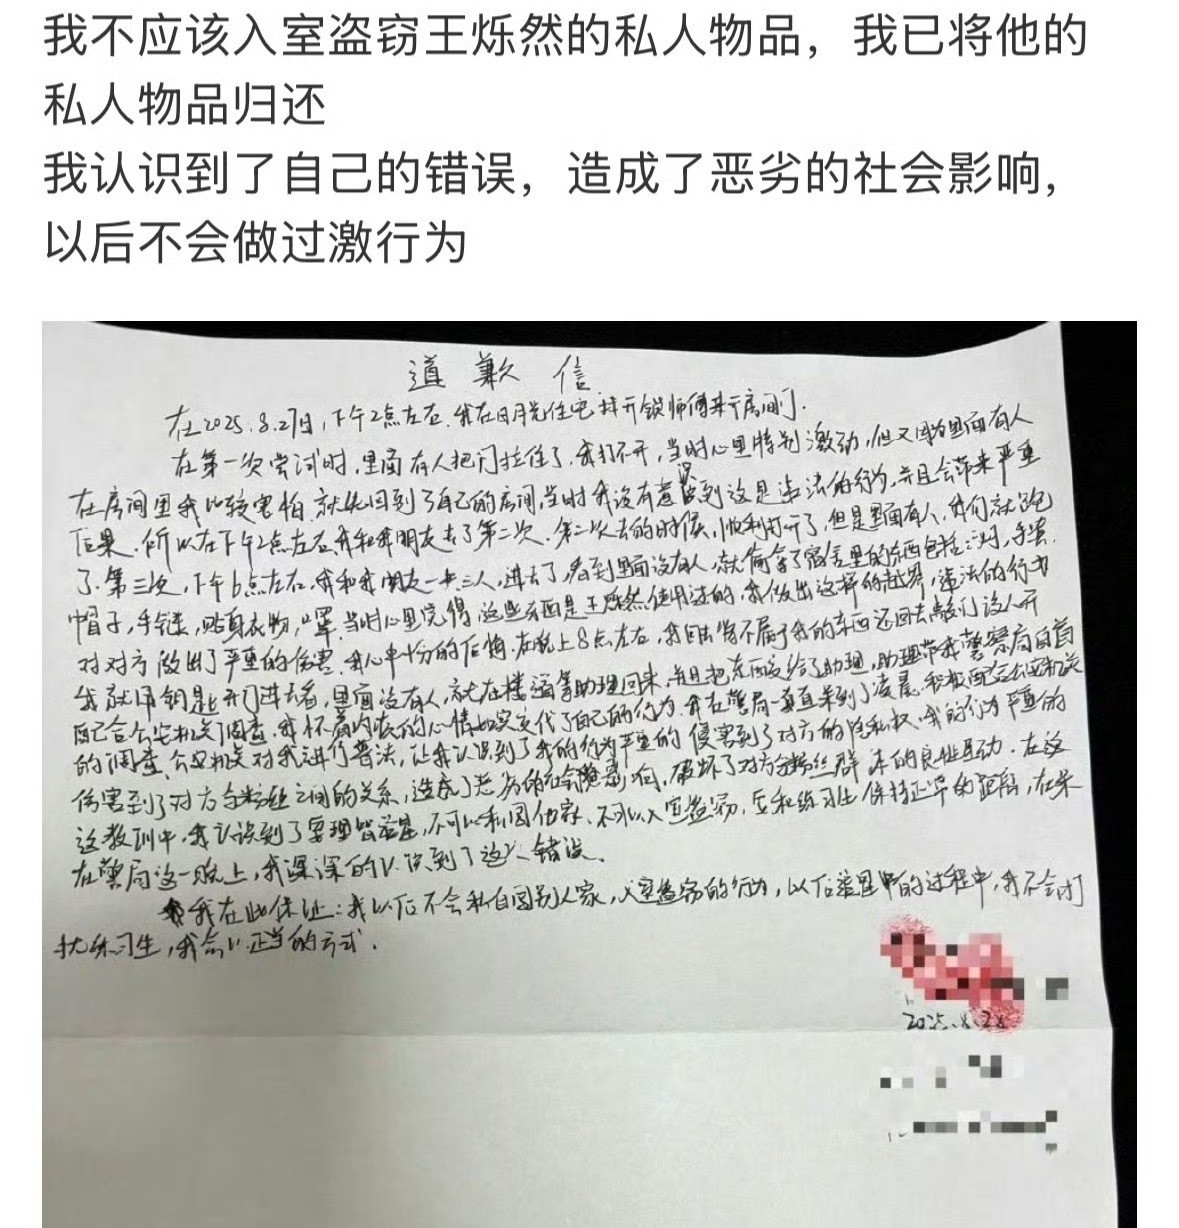 我不应该入室盗窃王烁然的私人物品，我已将他的
私人物品归还
我认识到了自己的错误，造成了恶劣的社会影响，
以后不会做过激行为
道歉信
在2025.8.27日,下午2点左右.我在日月光住宅找开锁师傅来开房间门.
在第一次尝试时,里面有人把门拉住了,我打不开,当时心里特别激动,但又因为里面有人
在房间里我比较害怕.就先回到了自己的房间,当时我没有意识到这是违法的行为,并且会带来严重
后果.所以在下午2点左右我和我朋友去了第二次.第二次去的时候,顺利打开了,但是里面有人,我们就跑
了.第三次,下午6点左右.我和我朋友一共三人,进去了,看到里面没有人,就偷拿了宿舍里的东西包括:,手表.
帽子,手链,贴身衣物,口罩.当时心里觉得这些东西是王烁然使用过的,我做出这样的越界,违法的行为
对对方做出了严重的伤害.我心中十分的后悔.在晚上8点左右,我回去将不属于我的东西还回去敲门没人开
我就用钥匙开门进去看,里面没有人,就在楼道等助理回来,并且把东西交给了助理,助理带我警察局自首
配合公安机关调查.我怀着内疚的心情如实交代了自己的行为.我在警局一直呆到了凌晨.积极配合公安机关
的调查.公安机关对我进行普法,让我认识到了我的行为严重的侵害到了对方的隐私权.我的行为严重的
伤害到了对方与粉丝之间的关系,造成了恶劣的社会影响,破坏了对方粉丝群本的良性互动.在这
这教训中,我认识到了要理智追星,不可以私闯他家.不可以入室盗窃,应和练习生保持正常的距离,在呆
在警局这一晚上,我深深的认识到了这个错误.
我在此保证:我以后不会私自闯别人家,入室盗窃的行为,以后追星中的过程中,我不会打
扰练习生,我会以正当的方式.
2025.8.28